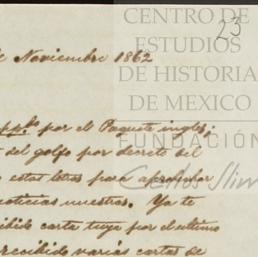 CENTRO DE
23
ESTUDIOS
DE HISTORIA
DE MEXICO
FUNDACIÓN
Carlos Slim
de Noviembre 1862
pp.do por el Paquete ingles;
del golfo por decreto del
estas letras para aprovechar
noticias nuestras. Ya te
carta tuya por el ultimo
recibido varias cartas de